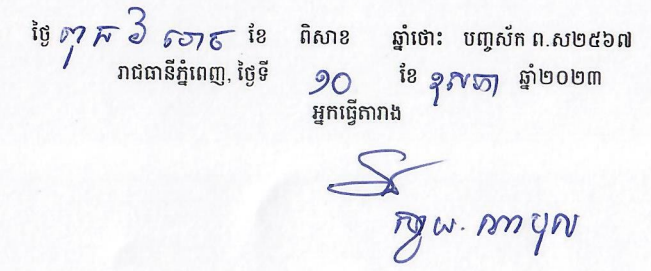 ថ្ងៃ ពុធ ៦ រោច ខែ ពិសាខ ឆ្នាំថោះ បញ្ចស័ក ព.ស២៥៦៧
រាជធានីភ្នំពេញ, ថ្ងៃទី ១០ ខែ ឧសភា ឆ្នាំ២០២៣
អ្នកធ្វើតារាង
ណាបុល